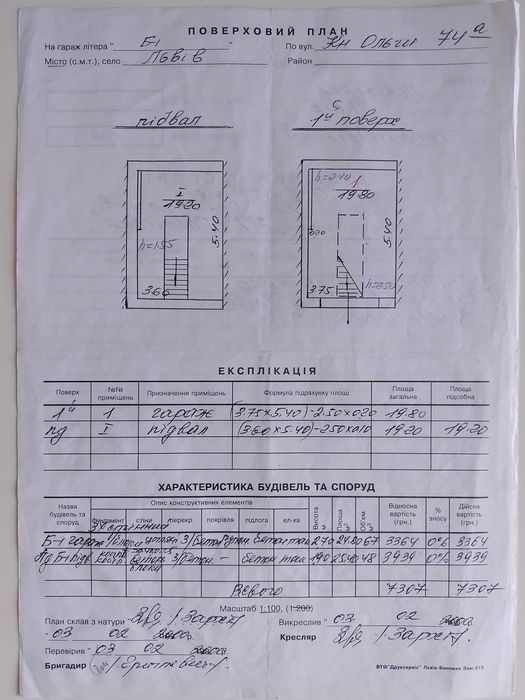 ПОВЕРХОВИЙ ПЛАН
На гараж літера " Б-1 " По вул. Кн Ольги 74 а
Місто (с.м.т.), село Львів Район
підвал 1ий поверх
h=2.40
I 1
19.20 19.80
5.40 5.40
h=1.55
3.60 3.75 h=2.50
ЕКСПЛІКАЦІЯ
Поверх №№ приміщень Призначення приміщень Формула підрахунку площі Площа загальна Площа підсобна
1ий 1 гараж (3.75×5.40)-2.50×0.20 19.80
пд I підвал (3.60×5.40)-2.50×0.10 19.20 19.20
ХАРАКТЕРИСТИКА БУДІВЕЛЬ ТА СПОРУД
Назва будівель та споруд Опис конструктивних елементів Висота м. Площа м2 Об'єм м3 Відносна вартість (грн.) % зносу Дійсна вартість (грн.)
фундамент стіни перекр. покрівля підлога ел-ка
Б-1 гараж з/бетон бетон 2.70 24.80 67 3364 0% 3364
Пд Б-1 підв бетон блоки з/бетон - бетон 1.90 25.40 48 3939 0% 3939
Всього 7307 7307
Масштаб 1:100, (1:200)
План склав з натури Викреслив " 03 02
" 03 02 Кресляр
Перевірив " 03 02
Бригадир
ВТФ "Друксервіс" Львів-Винники Зам.316